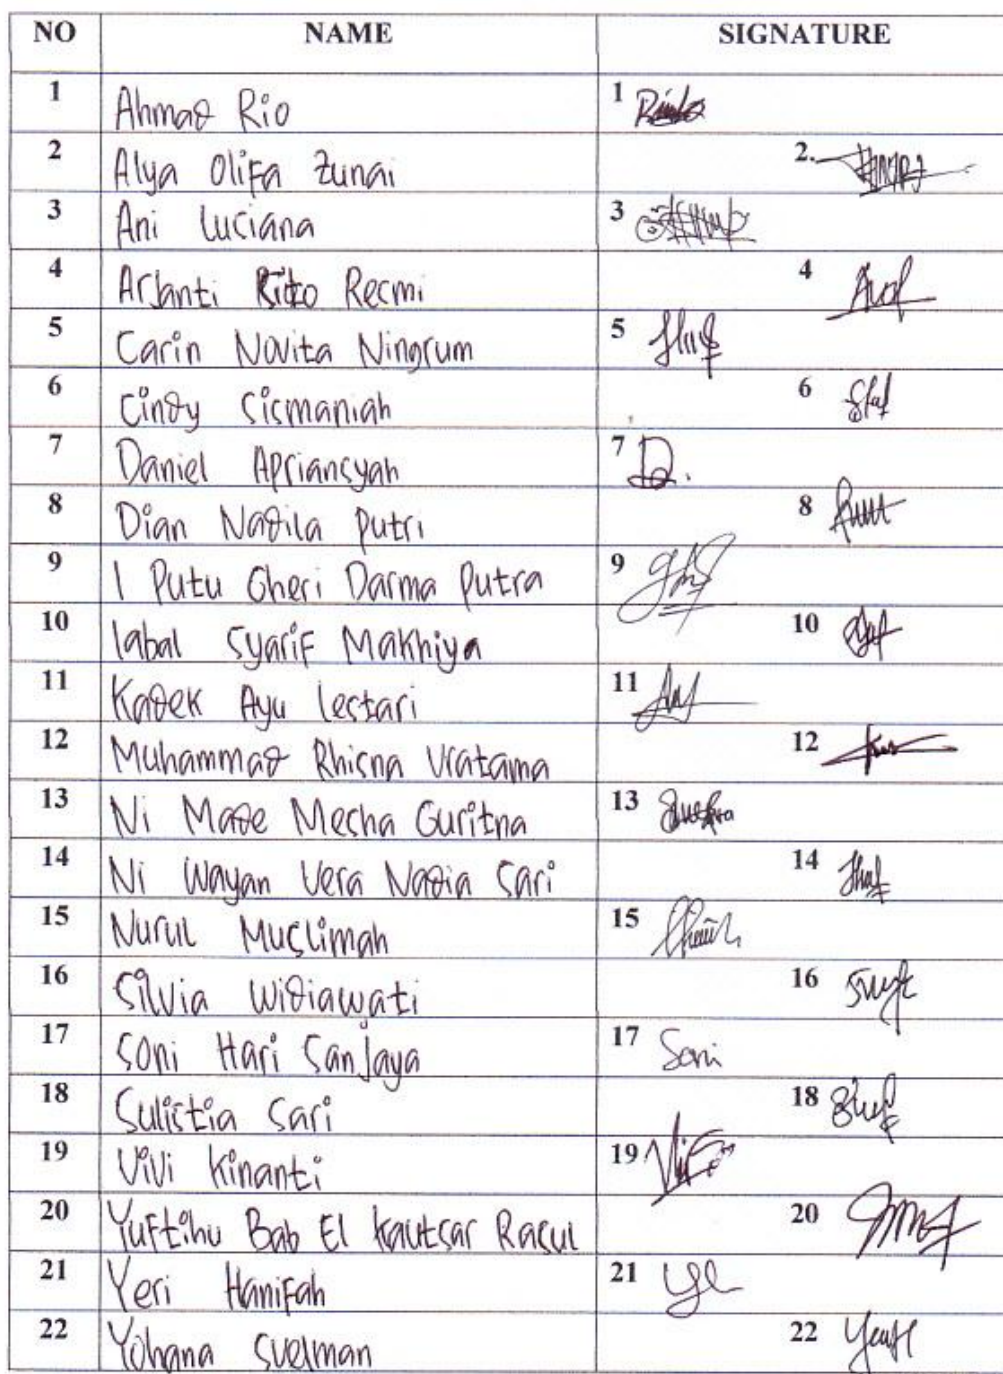 NO NAME SIGNATURE
1 Ahmad Rio 1
2 Alya Olifa Zunai 2.
3 Ani Lusiana 3
4 Arjanti Resmi 4
5 Carin Novita Ningrum 5
6 Cindy Sismaniah 6
7 Daniel Apriansyah 7 D.
8 Dian Nadila Putri 8
9 I Putu Gheri Darma Putra 9
10 Iqbal Syarif Makhiya 10
11 Kadek Ayu Lestari 11
12 Muhammad Rhisna Vratama 12
13 Ni Made Mesha Guritna 13
14 Ni Wayan Vera Nadia Sari 14
15 Nurul Muslimah 15
16 Silvia Widiawati 16
17 Soni Hari Sanjaya 17 Soni
18 Sulistia Sari 18
19 Vivi Kinanti 19
20 Yuftihu Bab El Kautsar Rasul 20
21 Yeri Hanifah 21
22 Yohana 22